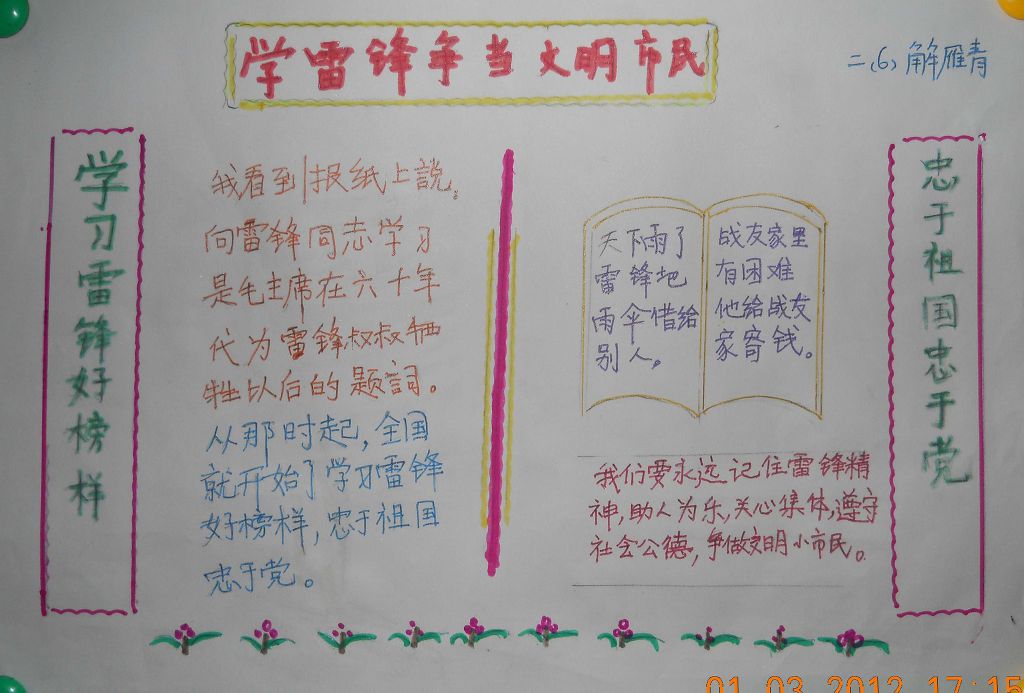 学雷锋年当文明市民
二(6)解雁青
学习雷锋好榜样
我看到报纸上說。
向雷锋同志学习
是毛主席在六十年
代为雷锋叔叔牺
牲以后的题詞。
从那时起,全国
就开始了学习雷锋
好榜样,忠于祖国
忠于党。
天下雨了
雷锋把
雨伞借给
别人。
战友家里
有困难
他给战友
家寄钱。
我们要永远记住雷锋精
神,助人为乐,关心集体,遵守
社会公德,争做文明小市民。
忠于祖国忠于党
01.03.2012 17:15